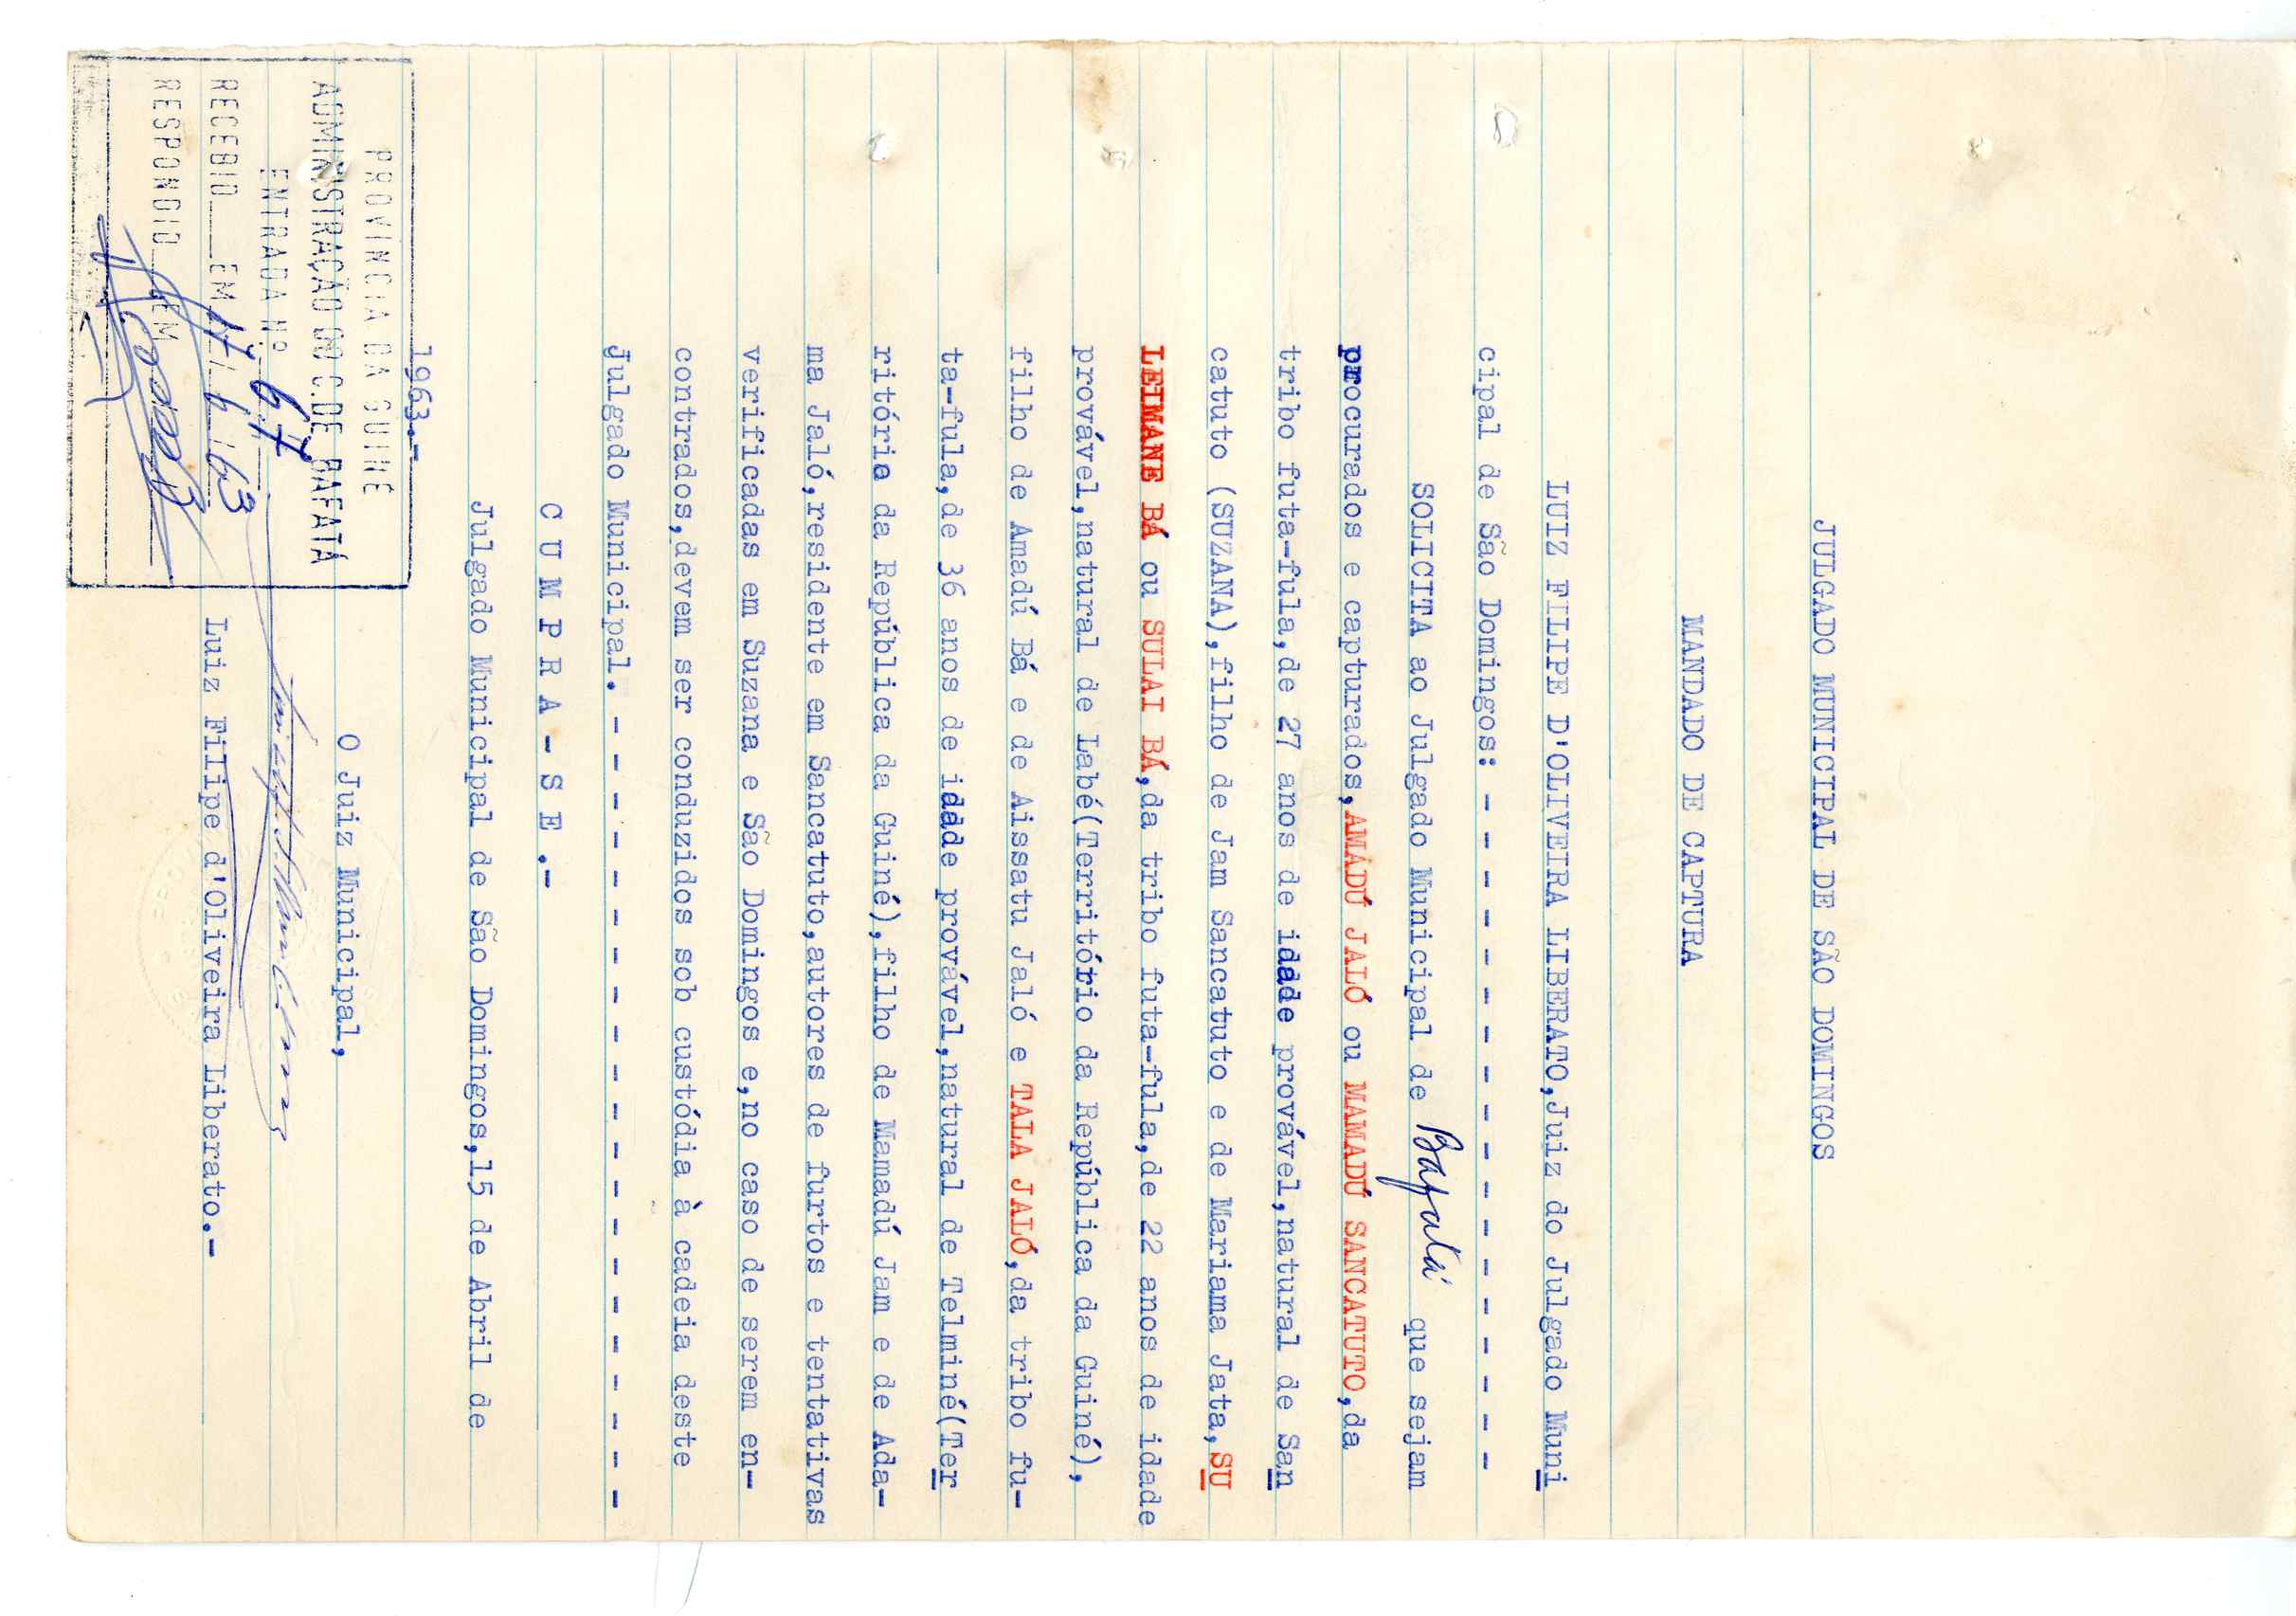 JULGADO MUNICIPAL DE SÃO DOMINGOS
MANDADO DE CAPTURA
LUIZ FILIPE D'OLIVEIRA LIBERATO,Juiz do Julgado Muni
cipal de São Domingos: - - - - - - - - - - - - - - - -
SOLICITA ao Julgado Municipal de Bafatá que sejam
procurados e capturados,AMADÚ JALÓ ou MAMADÚ SANCATUTO,da
tribo futa-fula,de 27 anos de idade provável,natural de San
catuto (SUZANA),filho de Jam Sancatuto e de Mariama Jata,SU
LEIMANE BÁ ou SULAI BÁ,da tribo futa-fula,de 22 anos de idade
provável,natural de Labé(Território da República da Guiné),
filho de Amadú Bá e de Aissatu Jaló e TALA JALÓ,da tribo fu-
ta-fula,de 36 anos de idade provável,natural de Telminé(Ter
ritória da República da Guiné),filho de Mamadú Jam e de Ada-
ma Jaló,residente em Sancatuto,autores de furtos e tentativas
verificadas em Suzana e São Domingos e,no caso de serem en-
contrados,devem ser conduzidos sob custódia à cadeia deste
Julgado Municipal. - - - - - - - - - - - - - - - - - - - -
C U M P R A - S E .-
Julgado Municipal de São Domingos,15 de Abril de
1963.-
O Juiz Municipal,
Luiz Filipe d'Oliveira Liberato.-
PROVINCIA DA GUINÉ
ADMINISTRAÇÃO DO C.DE BAFATÁ
ENTRADA Nº 67
RECEBIO EM 17/6/63
RESPONDIO EM